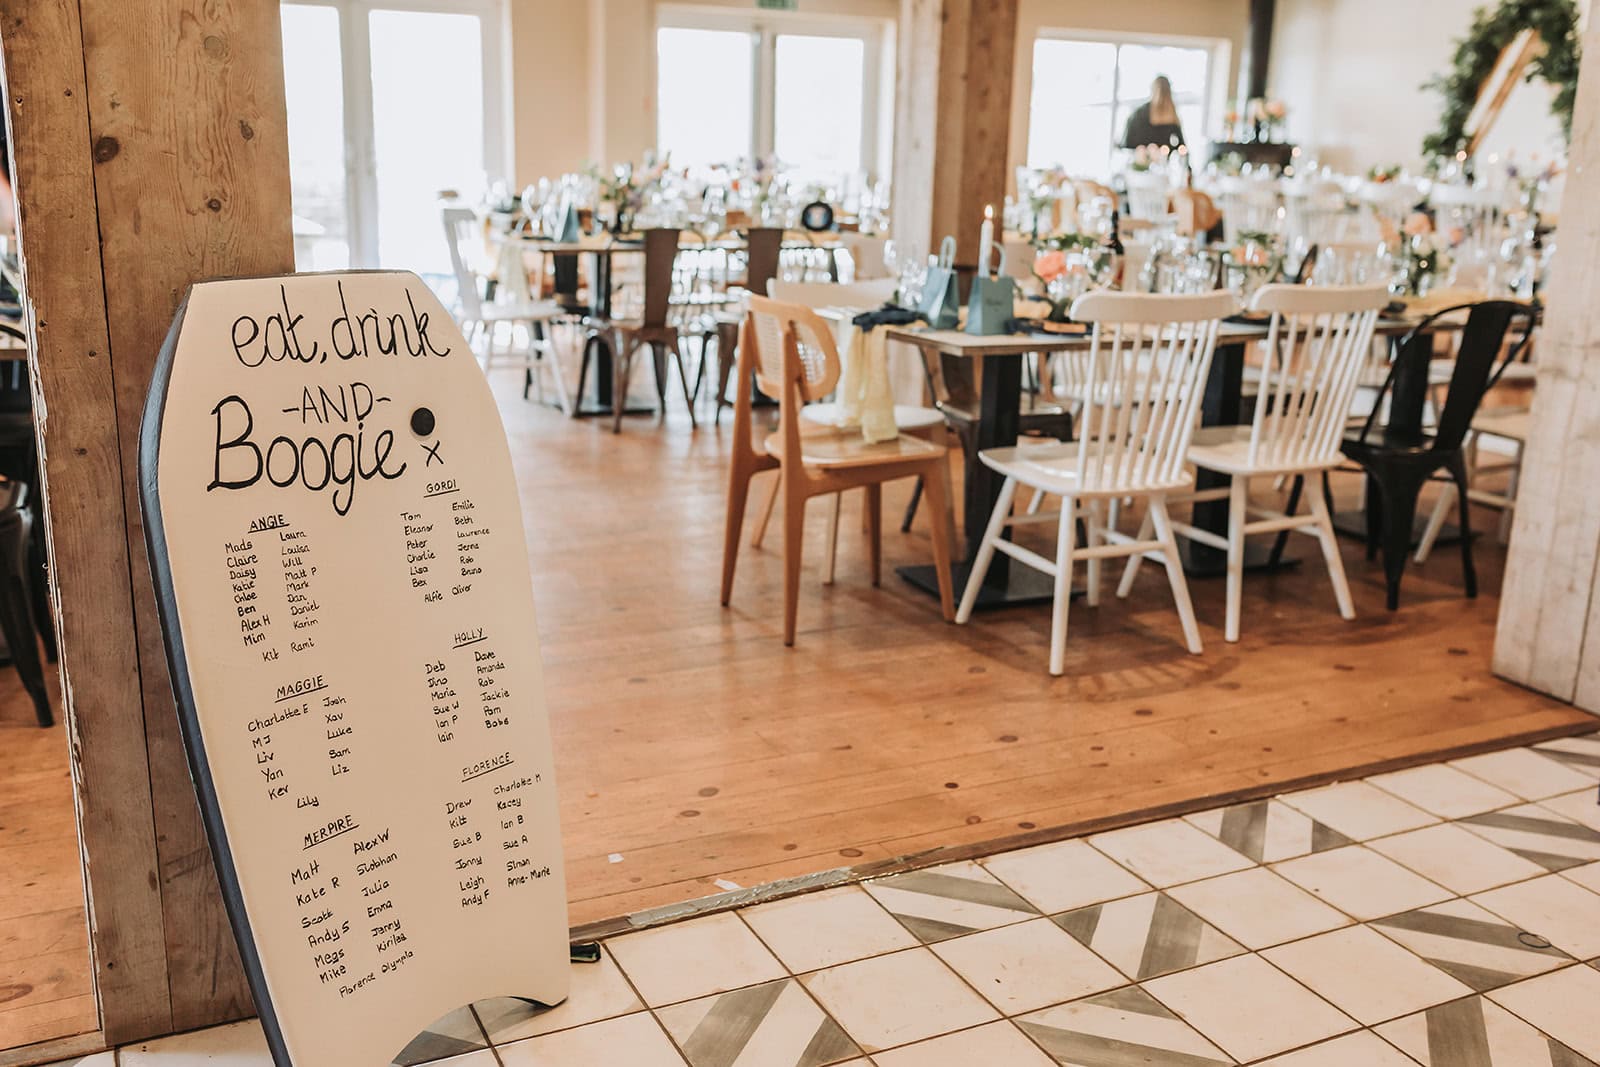 eat, drink
-AND-
Boogie
x
ANGIE
Mads Laura
Claire Louisa
Daisy Will
Katie Matt P
Chloe Mark
Ben Dan
Alex H Daniel
Mim Karim
Kit Rami
GORDI
Tom Emilie
Eleanor Beth
Peter Laurence
Charlie Jerna
Lisa Rob
Bex Bruno
Alfie Oliver
MAGGIE
Charlotte E Josh
MJ Xav
Liv Luke
Yan Sam
Kev Liz
Lily
HOLLY
Deb Dave
Dino Amanda
Maria Rob
Sue W Jackie
Ian P Pam
Iain Bobs
MERPIRE
Matt Alex W
Kate R Siobhan
Scott Julia
Andy S Emma
Megs Jenny
Mike
Florence Olympia
FLORENCE
Drew Charlotte M
Kitt Kacey
Sue B Ian B
Jonny Sue A
Leigh Simon
Andy F Anne-Marie